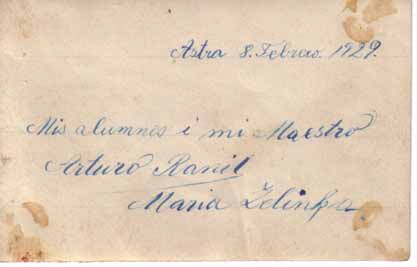 Astra 8. Febrero. 1929.
Mis alumnos i mi Maestro
Arturo Ranil
Maria Zelinka